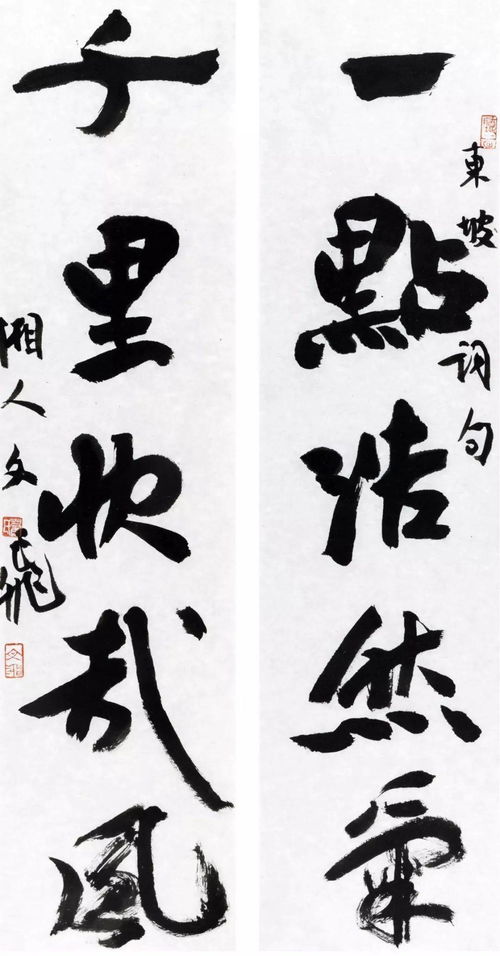 一點浩然氣
東坡詞句
千里快哉風
湘人文飛